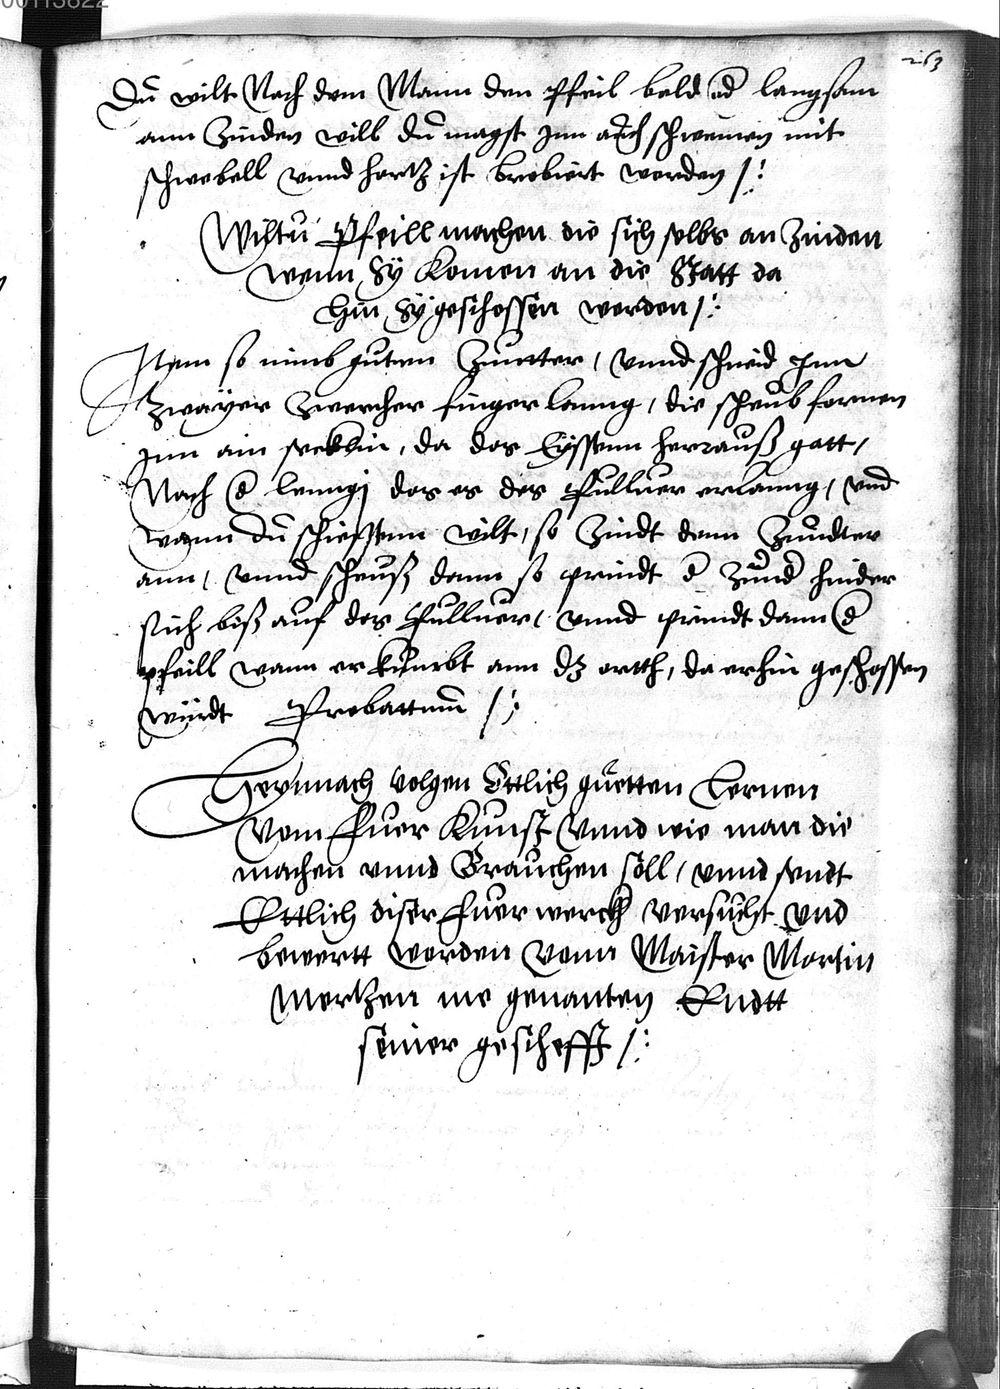 00113822
263
Du wilt Nach dem Mann den Pfeil bald od langsam
ann Zinden will du magst Inn auch schwemen mit
schwebell vnnd hartz ist brobiert worden /:
Wiltu Pfeill machen die sich selbs an Zinden
wenn Sy Komen an die Statt da
hin Sy geschossen werden /:
Item so nimb guten Zuntter / vnnd schneid Inn
Zwayer Zwercher finger lanng / die scheub fornen
Inn ain secklin, da das Eyssenn herrauß gatt /
Nach d lenng das es das Pulluer erlanng / vnd
wann du schiessenn wilt, so Zindt denn Zundter
ann / vnnd scheuß dann so prindt d Zund hinder
sich biß auf das Pulluer / vnnd prindt dann d
pfeill wann er kumbt ann dz ortth, da er hin geschossen
würdt Probattum /:
Hernnach volgen Ettlich guetten Lernen
Vom Fuer Kunst Vnnd wie man die
machen vnnd Brauchen soll / vnnd sendt
Ettlich diser Fuer werckh versucht vnd
bewertt worden Vonn Maister Martin
Mertzen me genanten Endtt
seiner geschefft /: